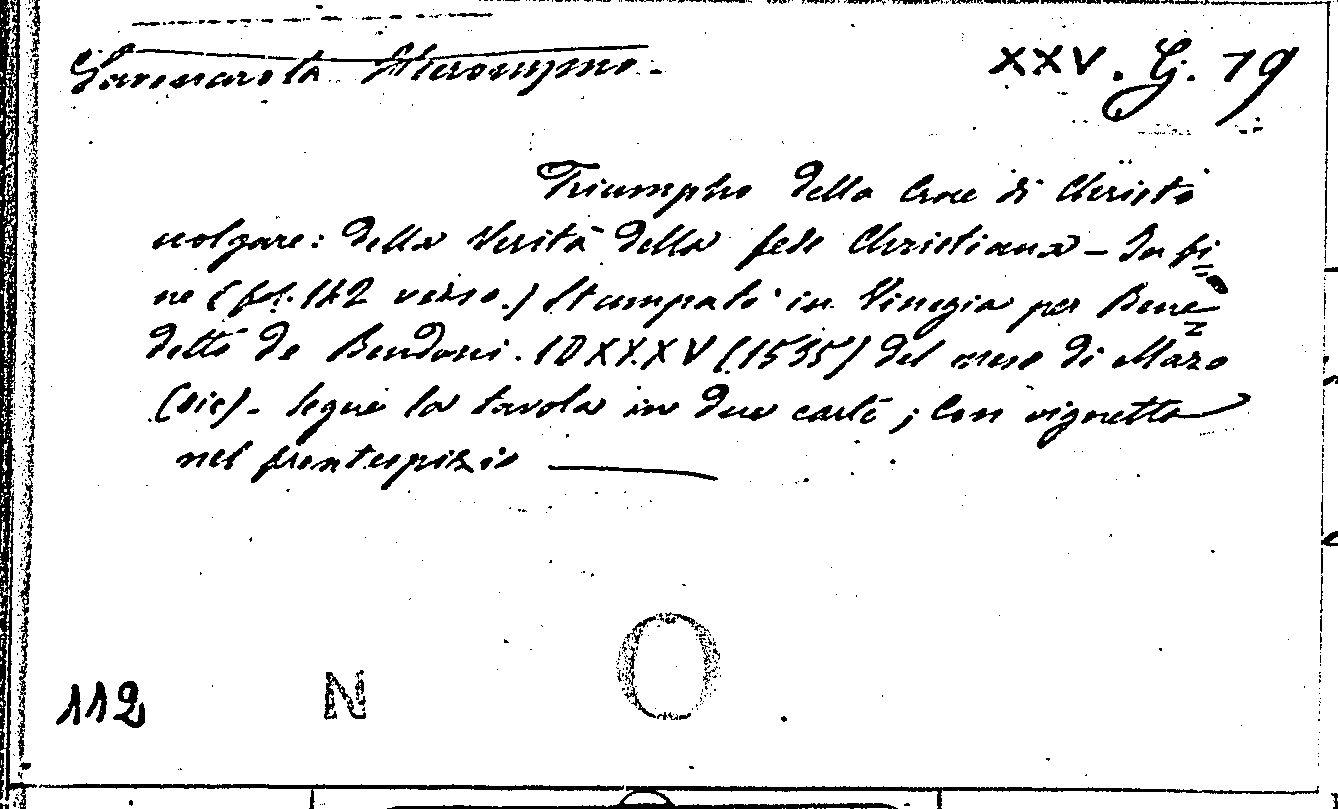 Savonarola Hieronymo. XXV. G. 19
Triumpho della Croce di Christo
volgare: della Verità della fede Christiana - In fi=
ne (fol. 112 verso.) Stampato in Vinegia per Bene=
detto de Bendoni. 1DXXXV (1535) del mese di Mazo
(sic). Segue la tavola in due carte; Con vignetta
nel frontespizio
112 N O